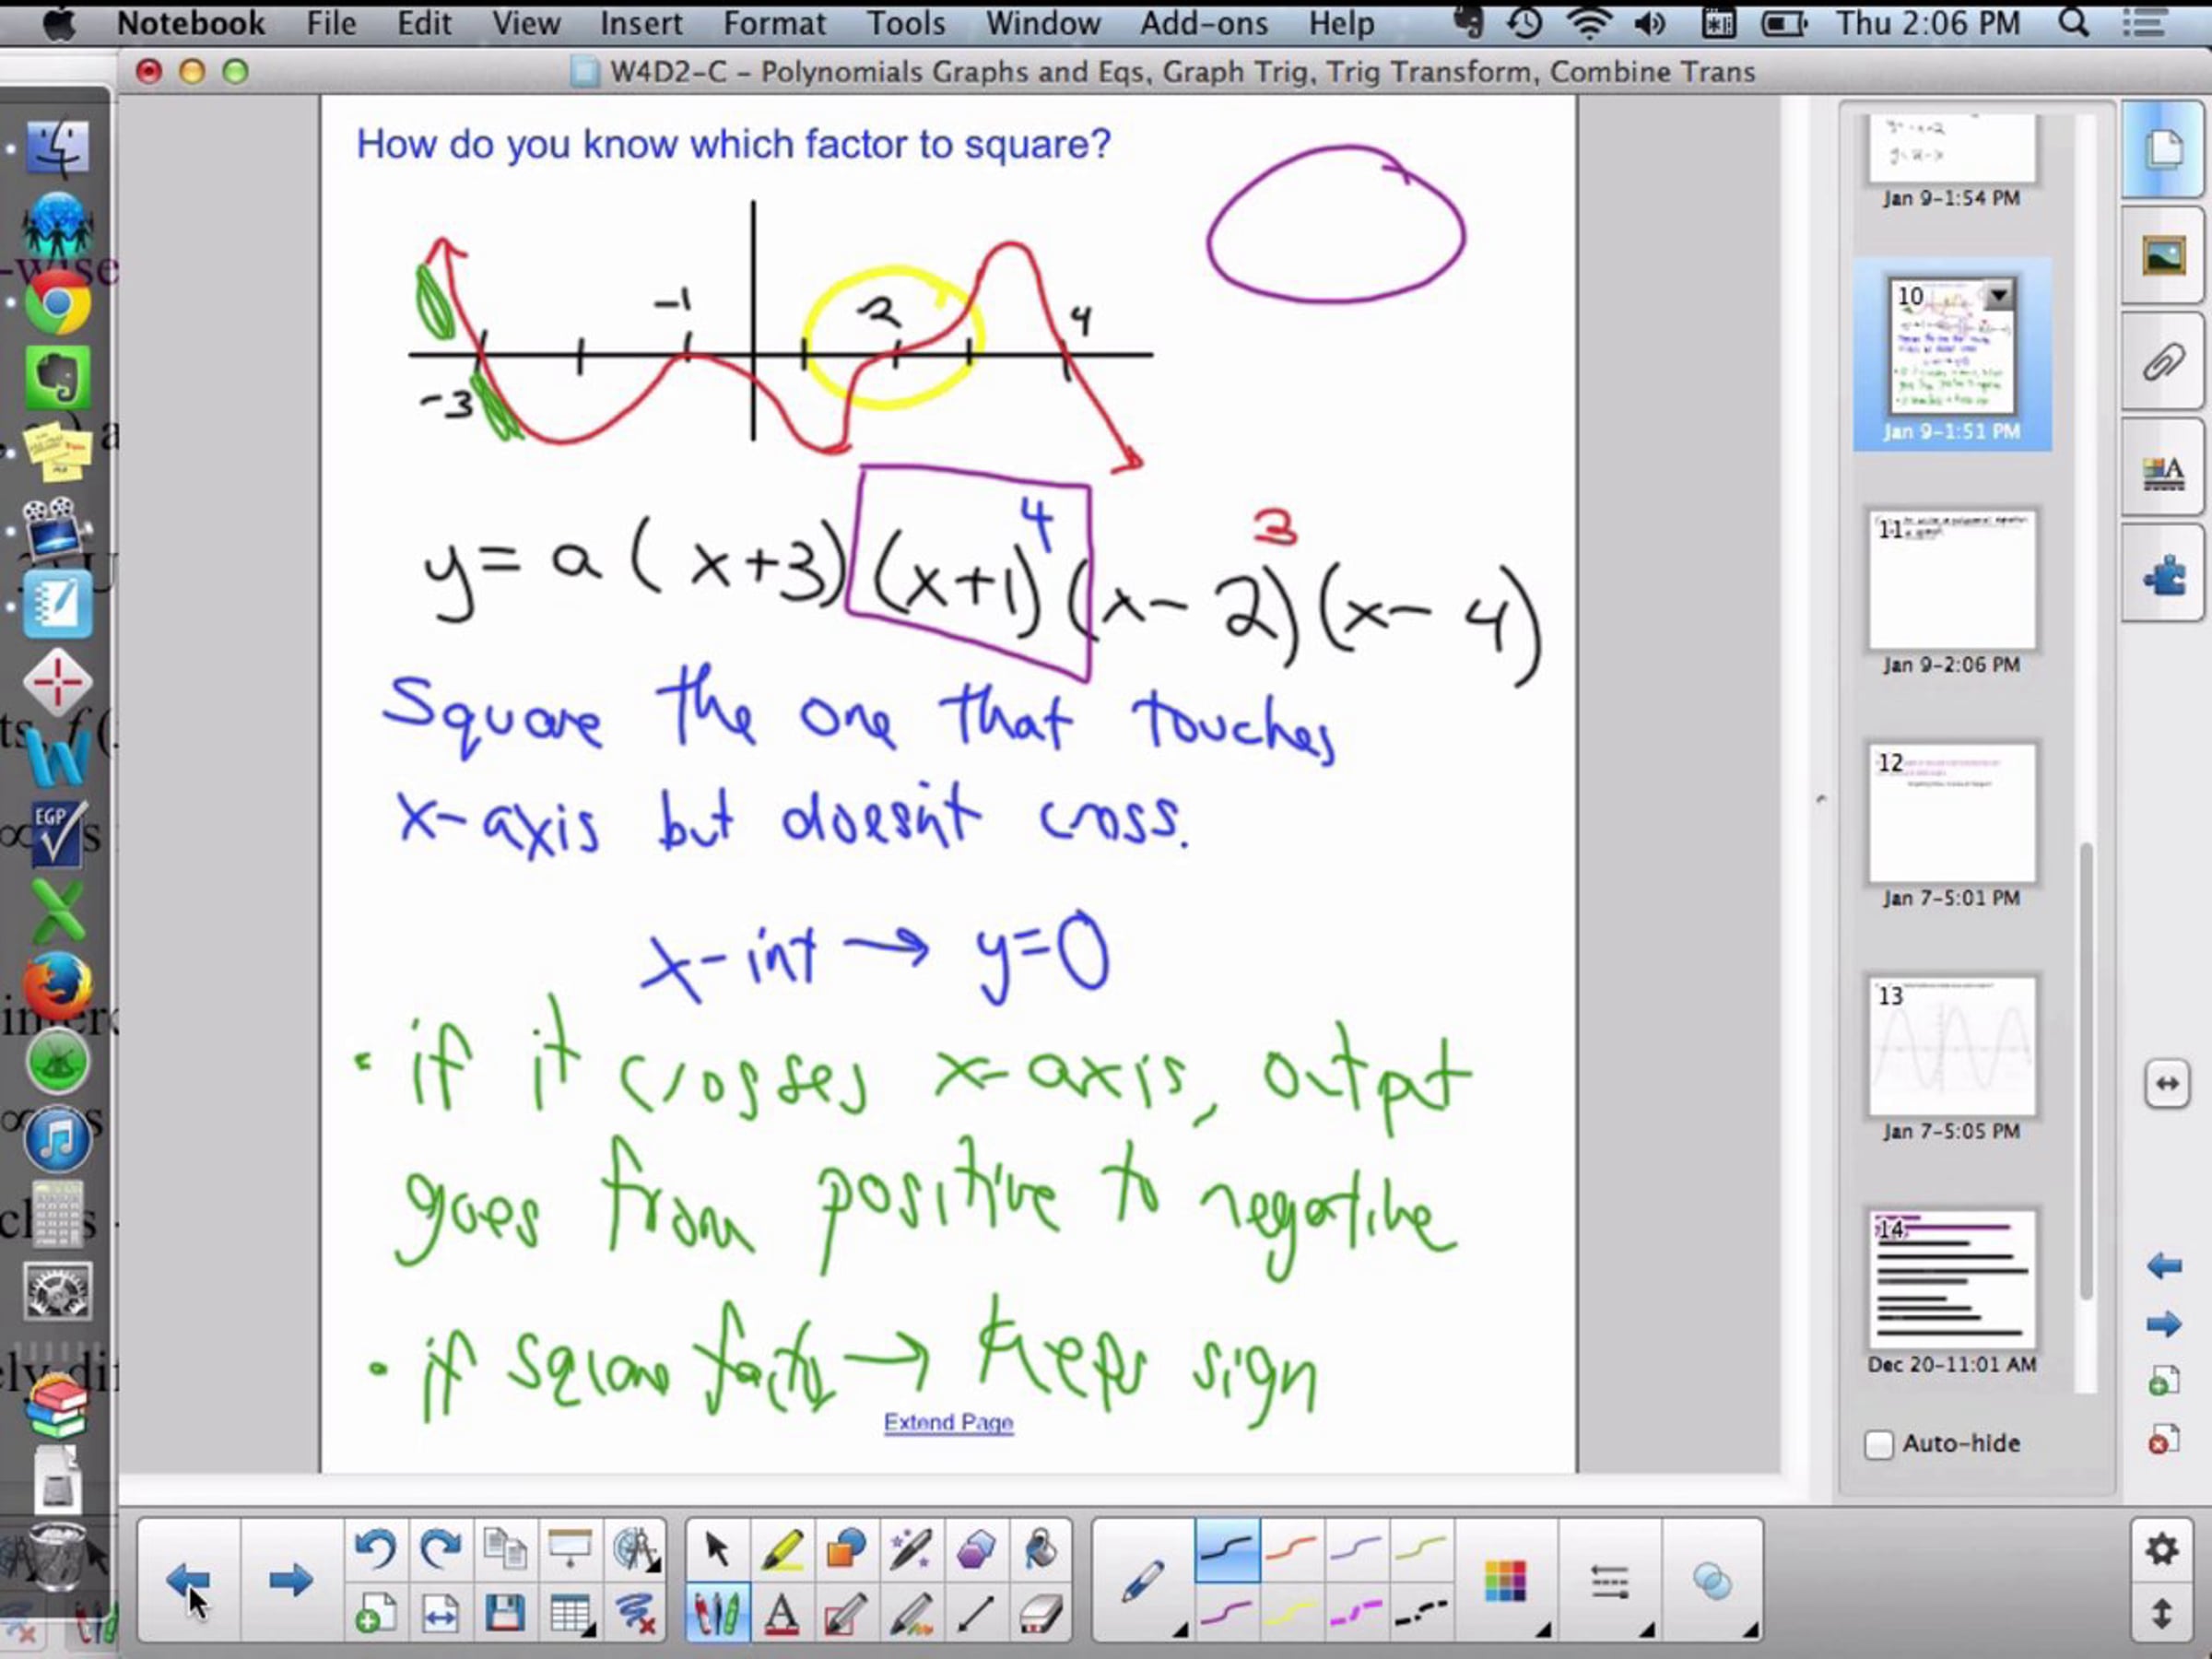 Notebook File Edit View Insert Format Tools Window Add-ons Help Thu 2:06 PM
W4D2-C – Polynomials Graphs and Eqs, Graph Trig, Trig Transform, Combine Trans
How do you know which factor to square?
-1 2 4
-3
y = a (x+3) (x+1)^4 (x-2)^3 (x-4)
Square the one that touches
x-axis but doesn't cross.
x-int → y=0
• if it crosses x-axis, output
goes from positive to negative
• if square factor → keeps sign
Extend Page
-wise
EGP
Jan 9-1:54 PM
10
Jan 9-1:51 PM
11
Jan 9-2:06 PM
12
Jan 7-5:01 PM
13
Jan 7-5:05 PM
14
Dec 20-11:01 AM
Auto-hide